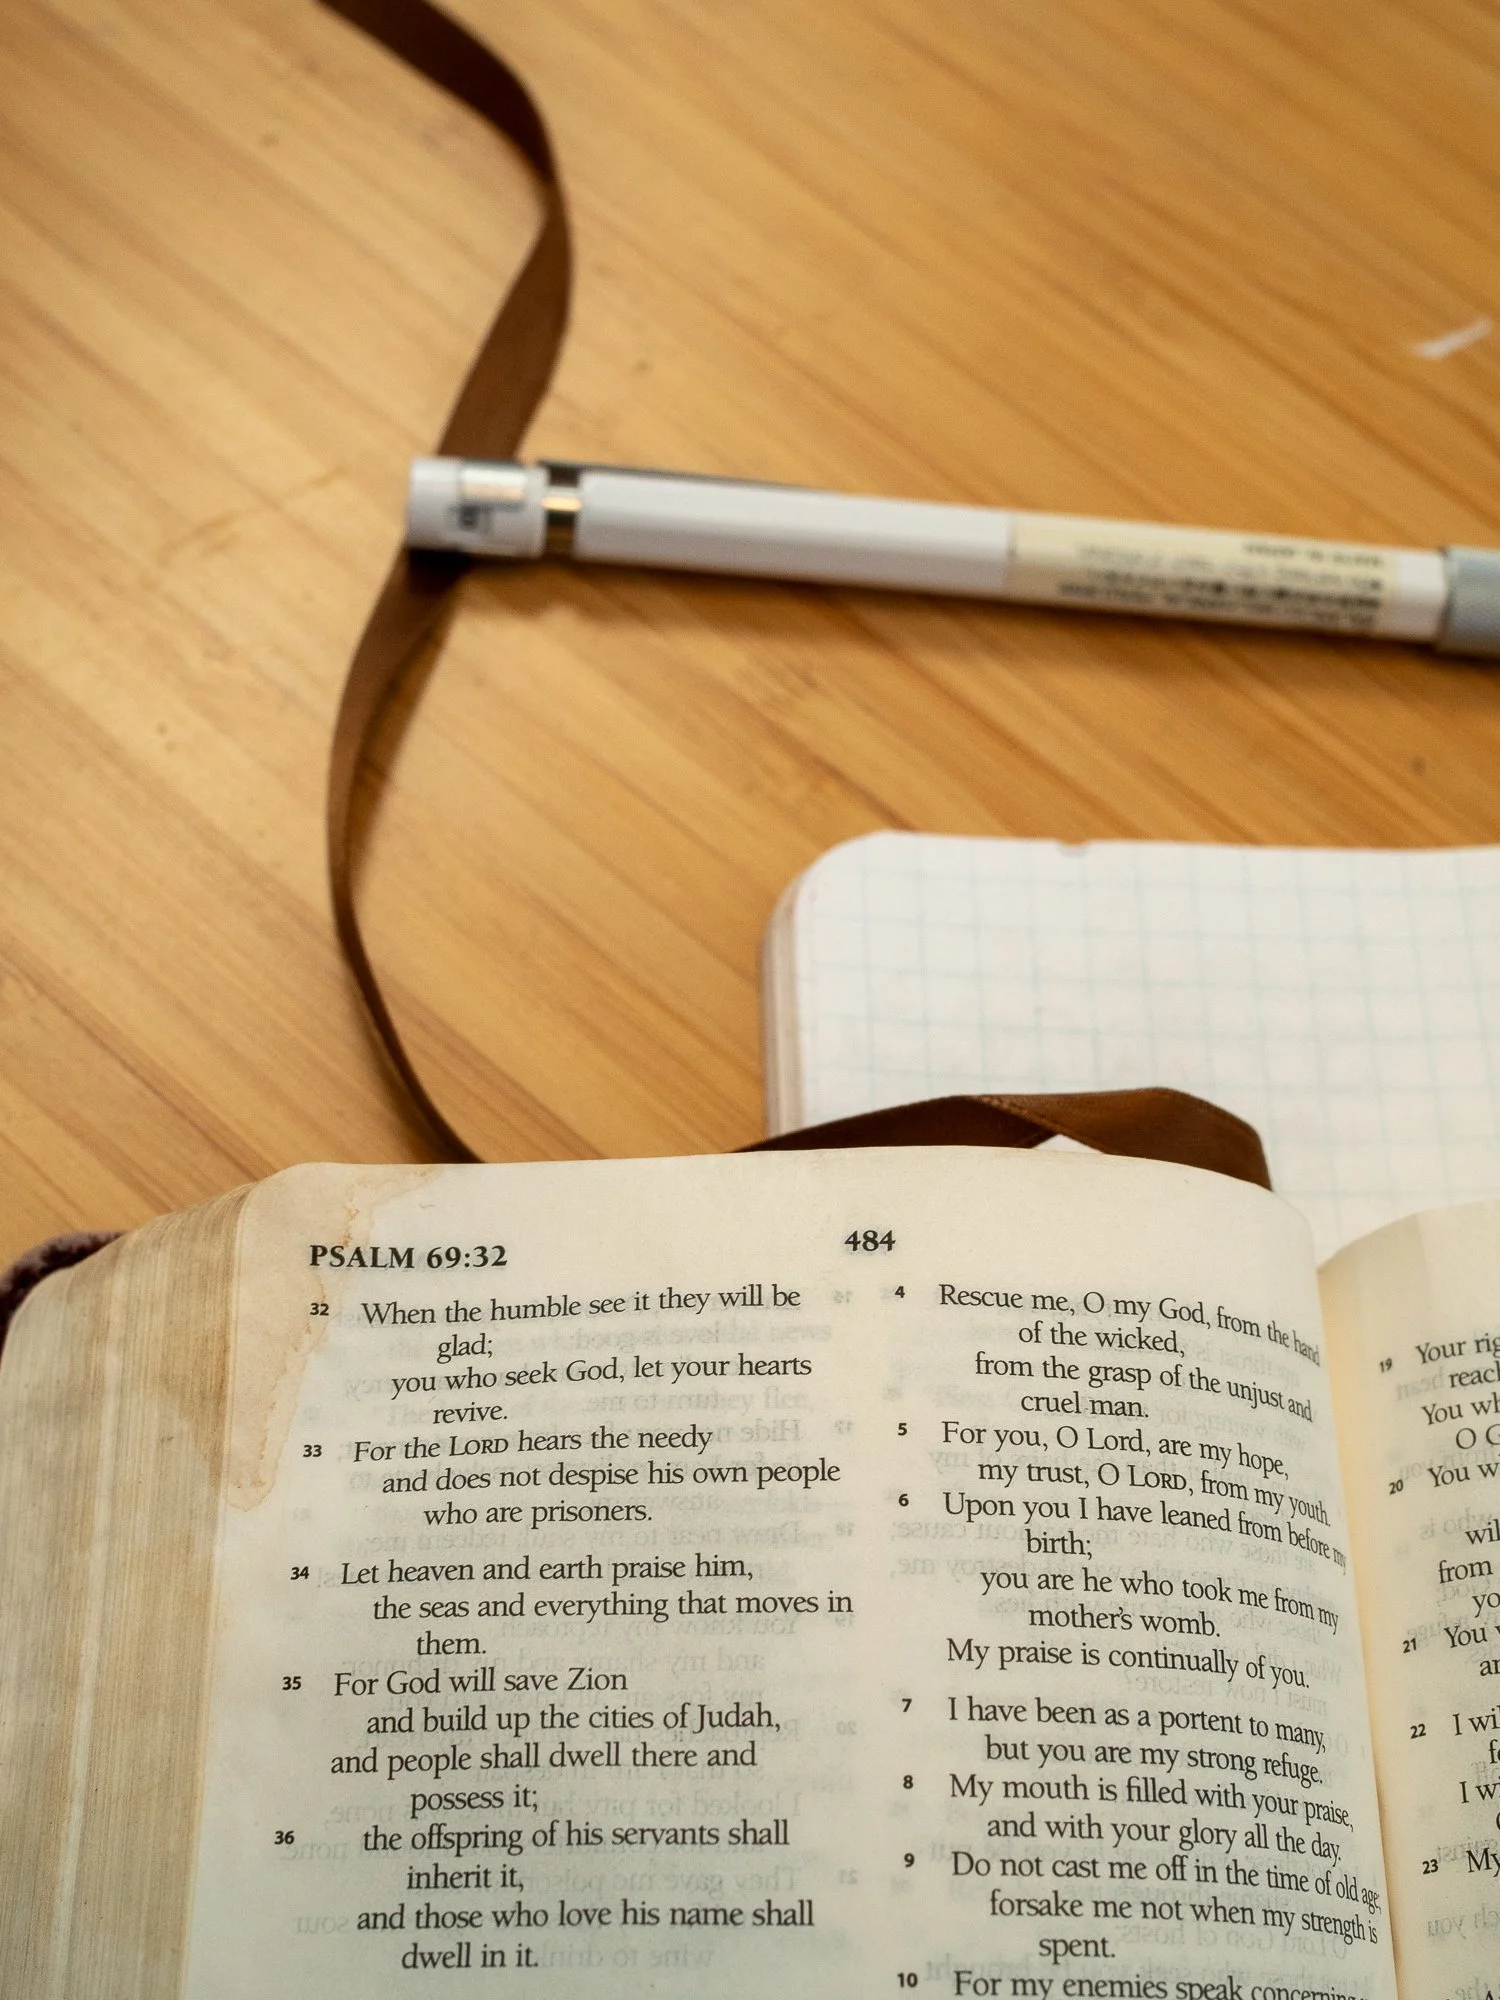 PSALM 69:32
484
32 When the humble see it they will be
glad;
you who seek God, let your hearts
revive.
33 For the LORD hears the needy
and does not despise his own people
who are prisoners.
34 Let heaven and earth praise him,
the seas and everything that moves in
them.
35 For God will save Zion
and build up the cities of Judah,
and people shall dwell there and
possess it;
36 the offspring of his servants shall
inherit it,
and those who love his name shall
dwell in it.
4 Rescue me, O my God, from the hand
of the wicked,
from the grasp of the unjust and
cruel man.
5 For you, O Lord, are my hope,
my trust, O LORD, from my youth.
6 Upon you I have leaned from before my
birth;
you are he who took me from my
mother's womb.
My praise is continually of you.
7 I have been as a portent to many,
but you are my strong refuge.
8 My mouth is filled with your praise,
and with your glory all the day.
9 Do not cast me off in the time of old age;
forsake me not when my strength is
spent.
10 For my enemies speak concerning
19 Your
You
O
20 You
from
21 You
22 I
I
23 My